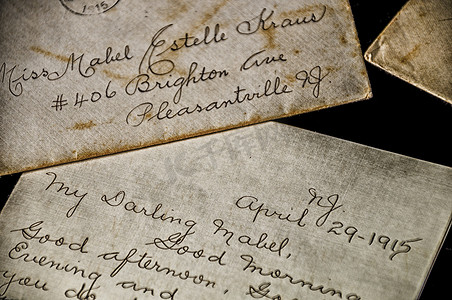 1-15
Miss Mabel Estelle Kraus
#406 Brighton Ave
Pleasantville NJ.
NJ
April 29-1915
My Darling Mabel,
Good Morning
Good afternoon,
Evening and
you do